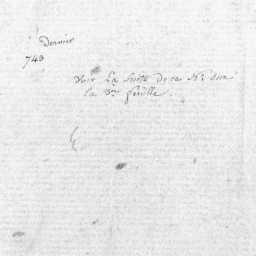 Dernier
743
Voir la suite de ce No. sur
la 3me feuille.